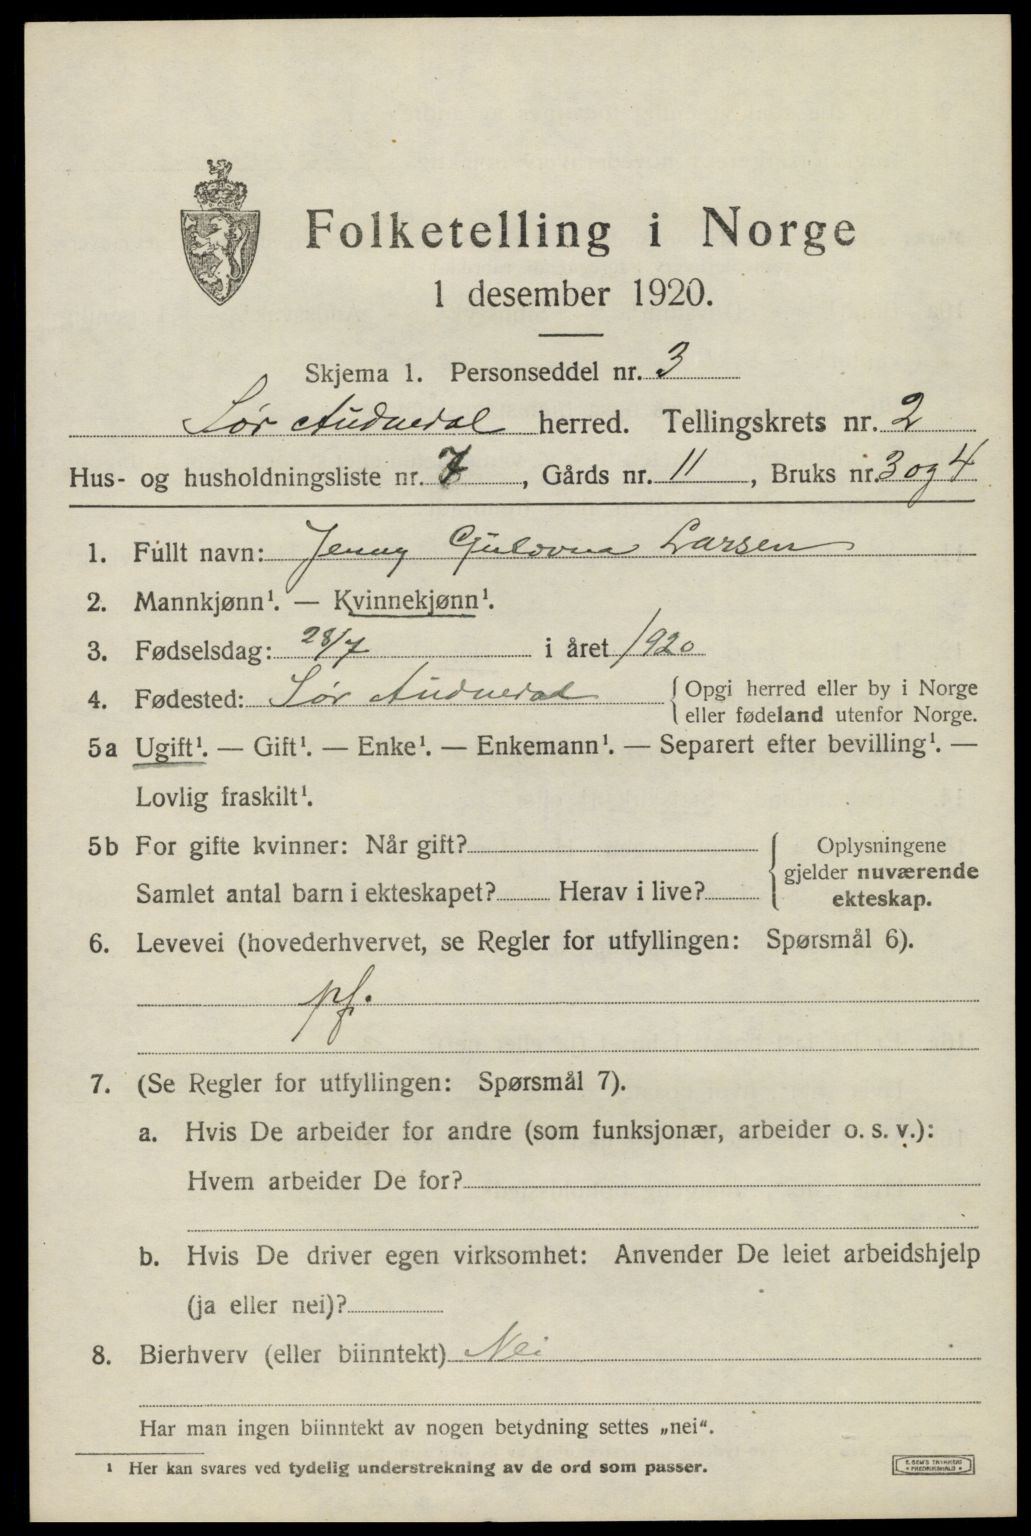 Folketelling i Norge
1 desember 1920.
Skjema 1. Personseddel nr. 3
Sør Audnedal herred. Tellingskrets nr. 2
Hus- og husholdningsliste nr. 7, Gårds nr. 11, Bruks nr. 3 og 4
1. Fullt navn: Jenny Gulovna Larsen
2. Mannkjønn¹. — Kvinnekjønn¹.
3. Fødselsdag: 28/7 i året 1920
4. Fødested: Sør Audnedal {Opgi herred eller by i Norge
eller fødeland utenfor Norge.
5a Ugift¹. — Gift¹. — Enke¹. — Enkemann¹. — Separert efter bevilling¹. —
Lovlig fraskilt¹.
5b For gifte kvinner: Når gift? { Oplysningene
gjelder nuværende
Samlet antal barn i ekteskapet? Herav i live?
ekteskap.
6. Levevei (hovederhvervet, se Regler for utfyllingen: Spørsmål 6).
pf.
7. (Se Regler for utfyllingen: Spørsmål 7).
a. Hvis De arbeider for andre (som funksjonær, arbeider o. s. v.):
Hvem arbeider De for?
b. Hvis De driver egen virksomhet: Anvender De leiet arbeidshjelp
(ja eller nei)?
8. Bierhverv (eller biinntekt) Nei
Har man ingen biinntekt av nogen betydning settes „nei“.
¹ Her kan svares ved tydelig understrekning av de ord som passer.